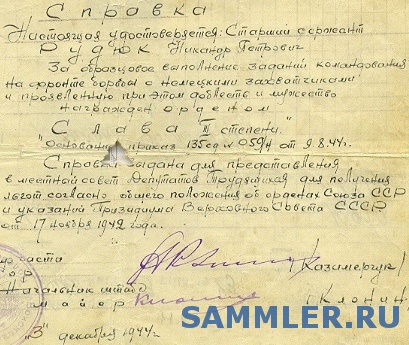 Справка
Настоящая удостоверяется: Старший сержант
Рудюк Никандр Петрович
За образцовое выполнение заданий командования
на фронте борьбы с немецкими захватчиками
и проявленную при этом доблесть и мужество
награжден орденом
"Слава III степени."
Основание: приказ 135 сд № 059/н от 9.8.44 г.
Справка выдана для представления
в местный совет депутатов Трудящихся для получения
льгот согласно общего положения об орденах Союза ССР
и указаний Президиума Верховного Совета СССР
от 17 ноября 1942 года.
части
/Казимерчук/
Начальник штаба
майор /Клонин/
"3" декабря 1944 г.
SAMMLER.RU